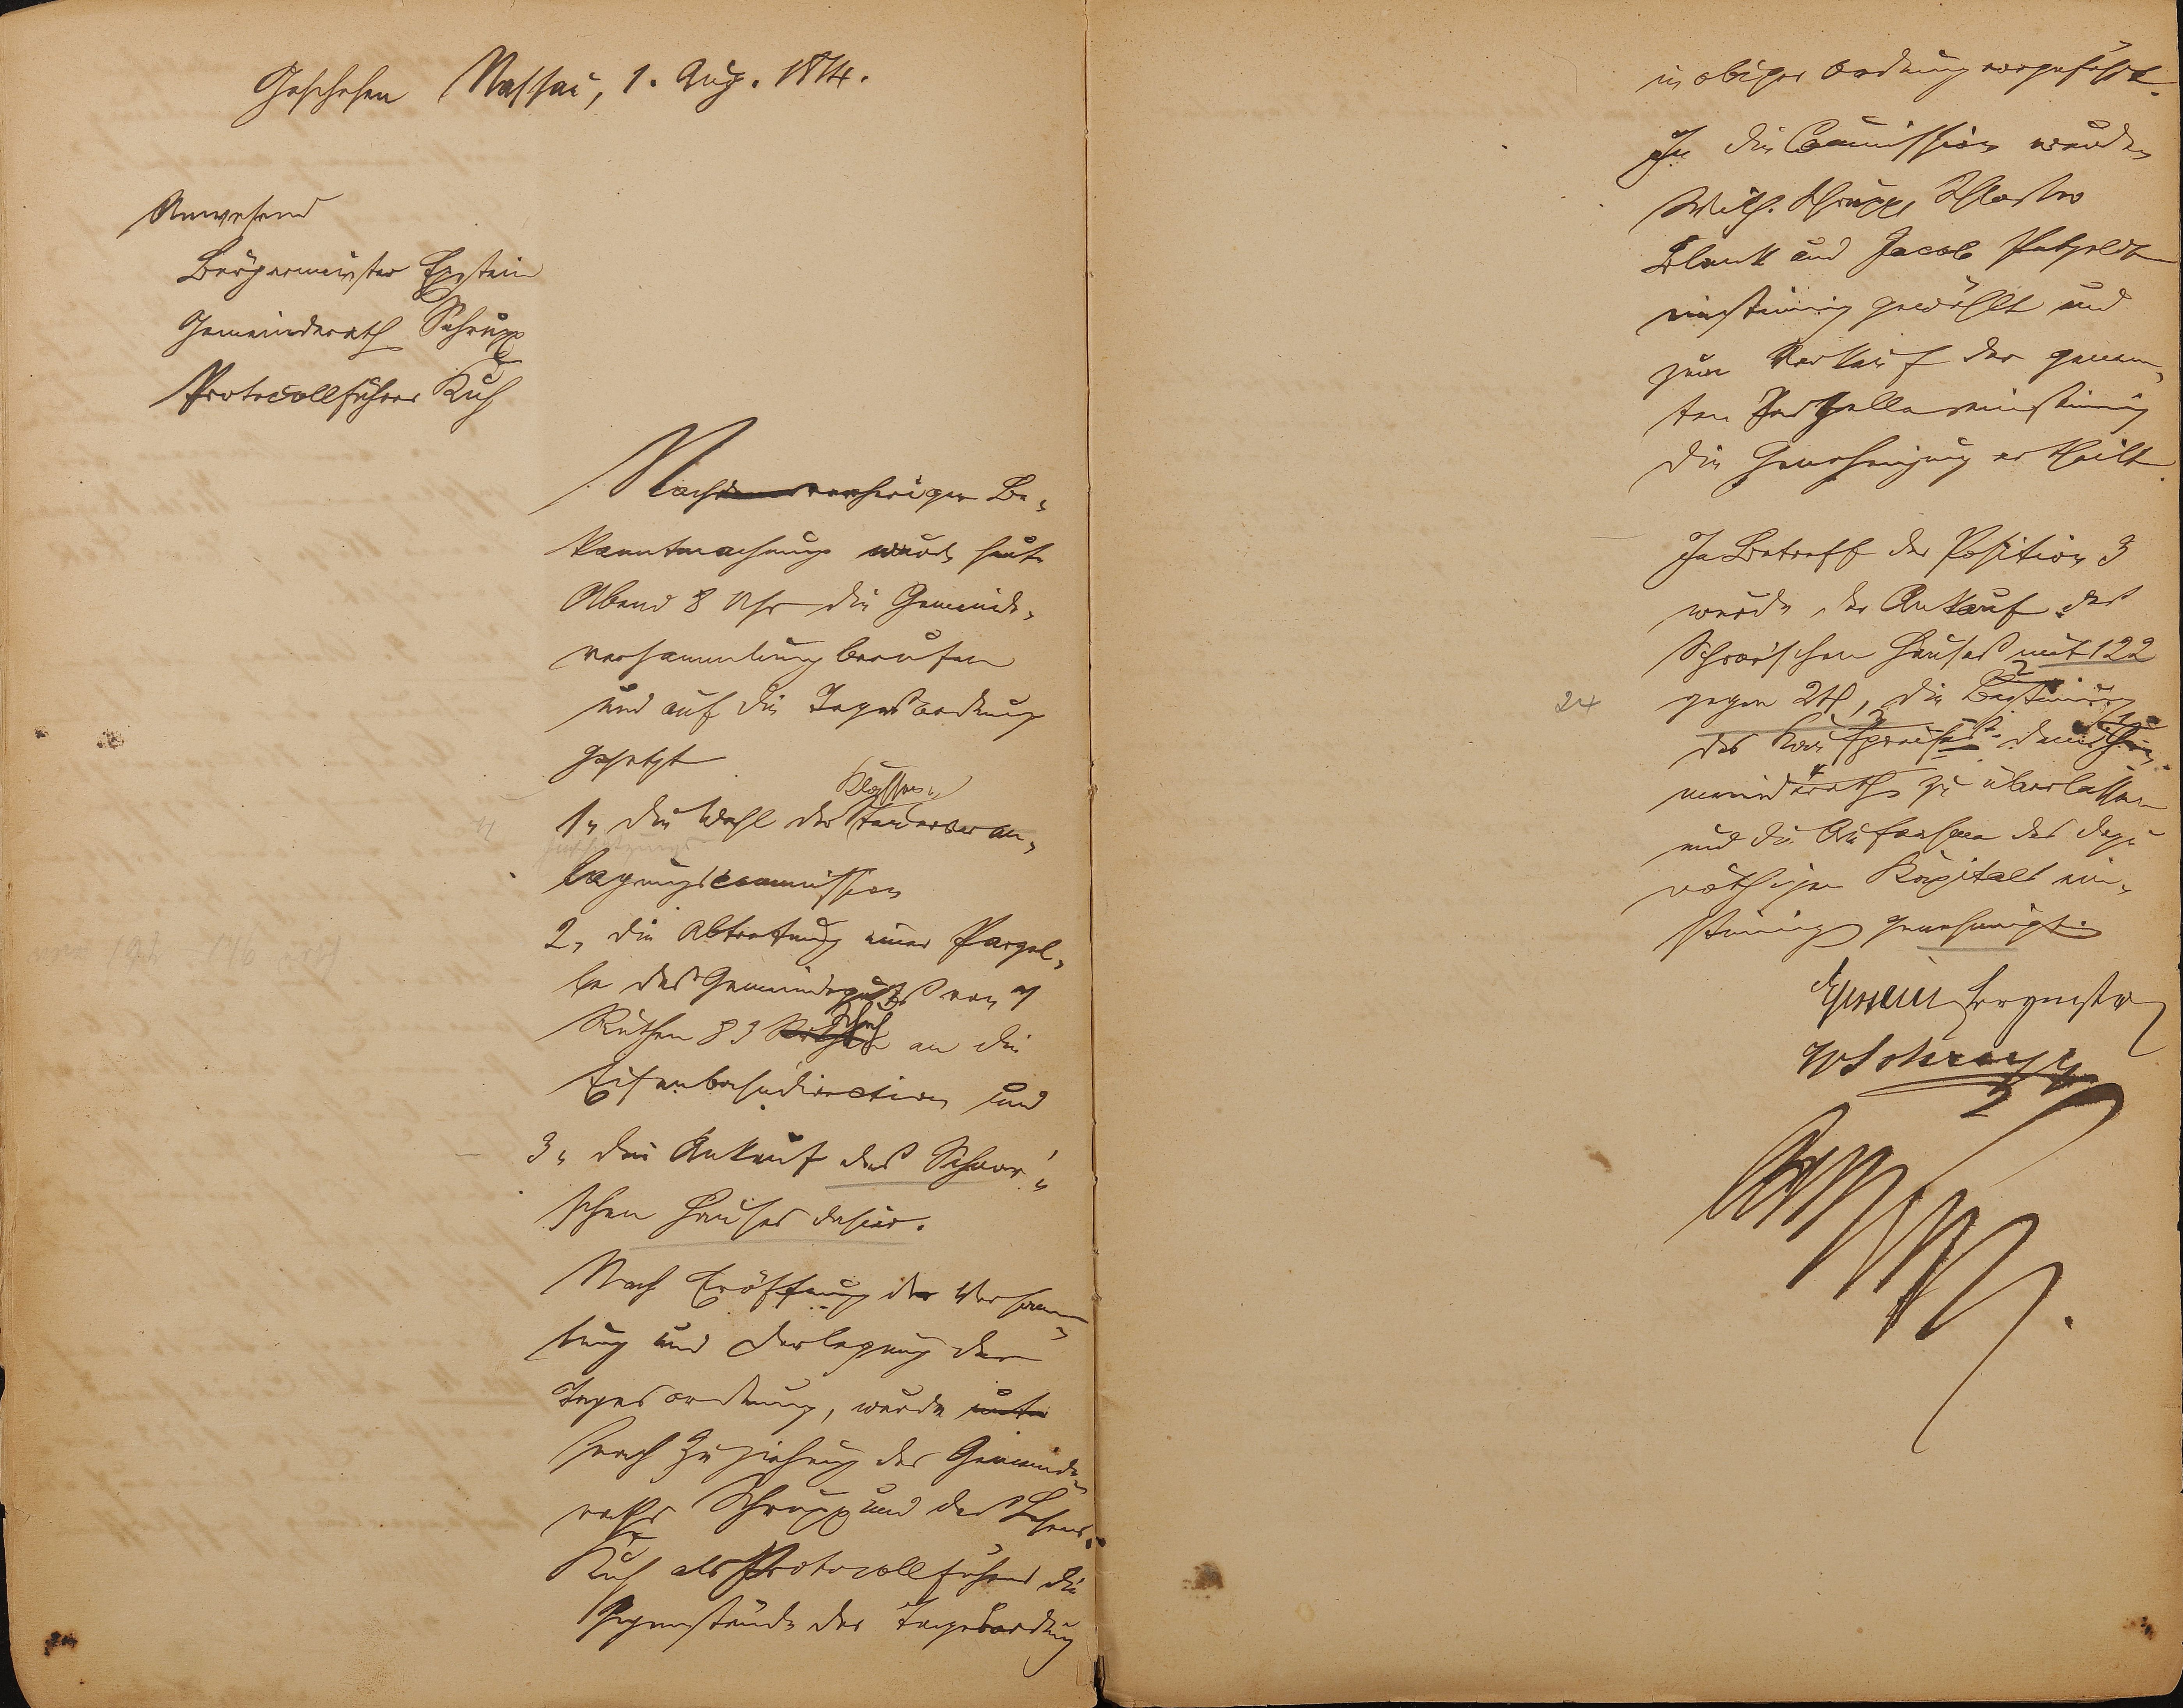 Geschehen Nassau, 1. Aug. 1874.
Anwesend
Bürgermeister Epstein
Gemeinderath Schrupp
Protocollführer Kuh
Nachdem vorheriger Be-
kanntmachung wurde heute
Abend 8 Uhr die Gemeinde-
versammlung berufen
und auf die Tagesordnung
gesetzt
Klassen
1, die Wahl der Steuerveran-
lagungscommission
2, die Abtretung einer Parzel-
le des Gemeindeguts von
Ruthen 83 Schuh an die
Eisenbahndirection und
3, den Ankauf des Schaar'-
schen Hauses dahier.
Nach Eröffnung der Versamm-
lung und Darlegung der
Tagesordnung, wurde unter
nach Zuziehung des Gemeinde-
raths Schrupp und des
Kuh als Protocollführer die
Gegenstände der Tagesordnung
in obiger Ordnung vorgeführt.
In die Commission wurden
Wilh. Schrupp,
Blank und Jacob
einstimig gewählt und
zum Verkauf der genann-
ten Parzelle einstimig
die Genehmigung ertheilt.
In Betreff der Position 3
wurde der Ankauf des
Schaar'schen Hauses mit 122
24
gegen 24, die Bestimung
des Kaufpreises dem Ge-
meinderath zu überlassen
und die Aufnahme des dazu
nöthigen Kapitals ein-
stimig genehmigt.
Epstein Bürgmstr
W Schrupp